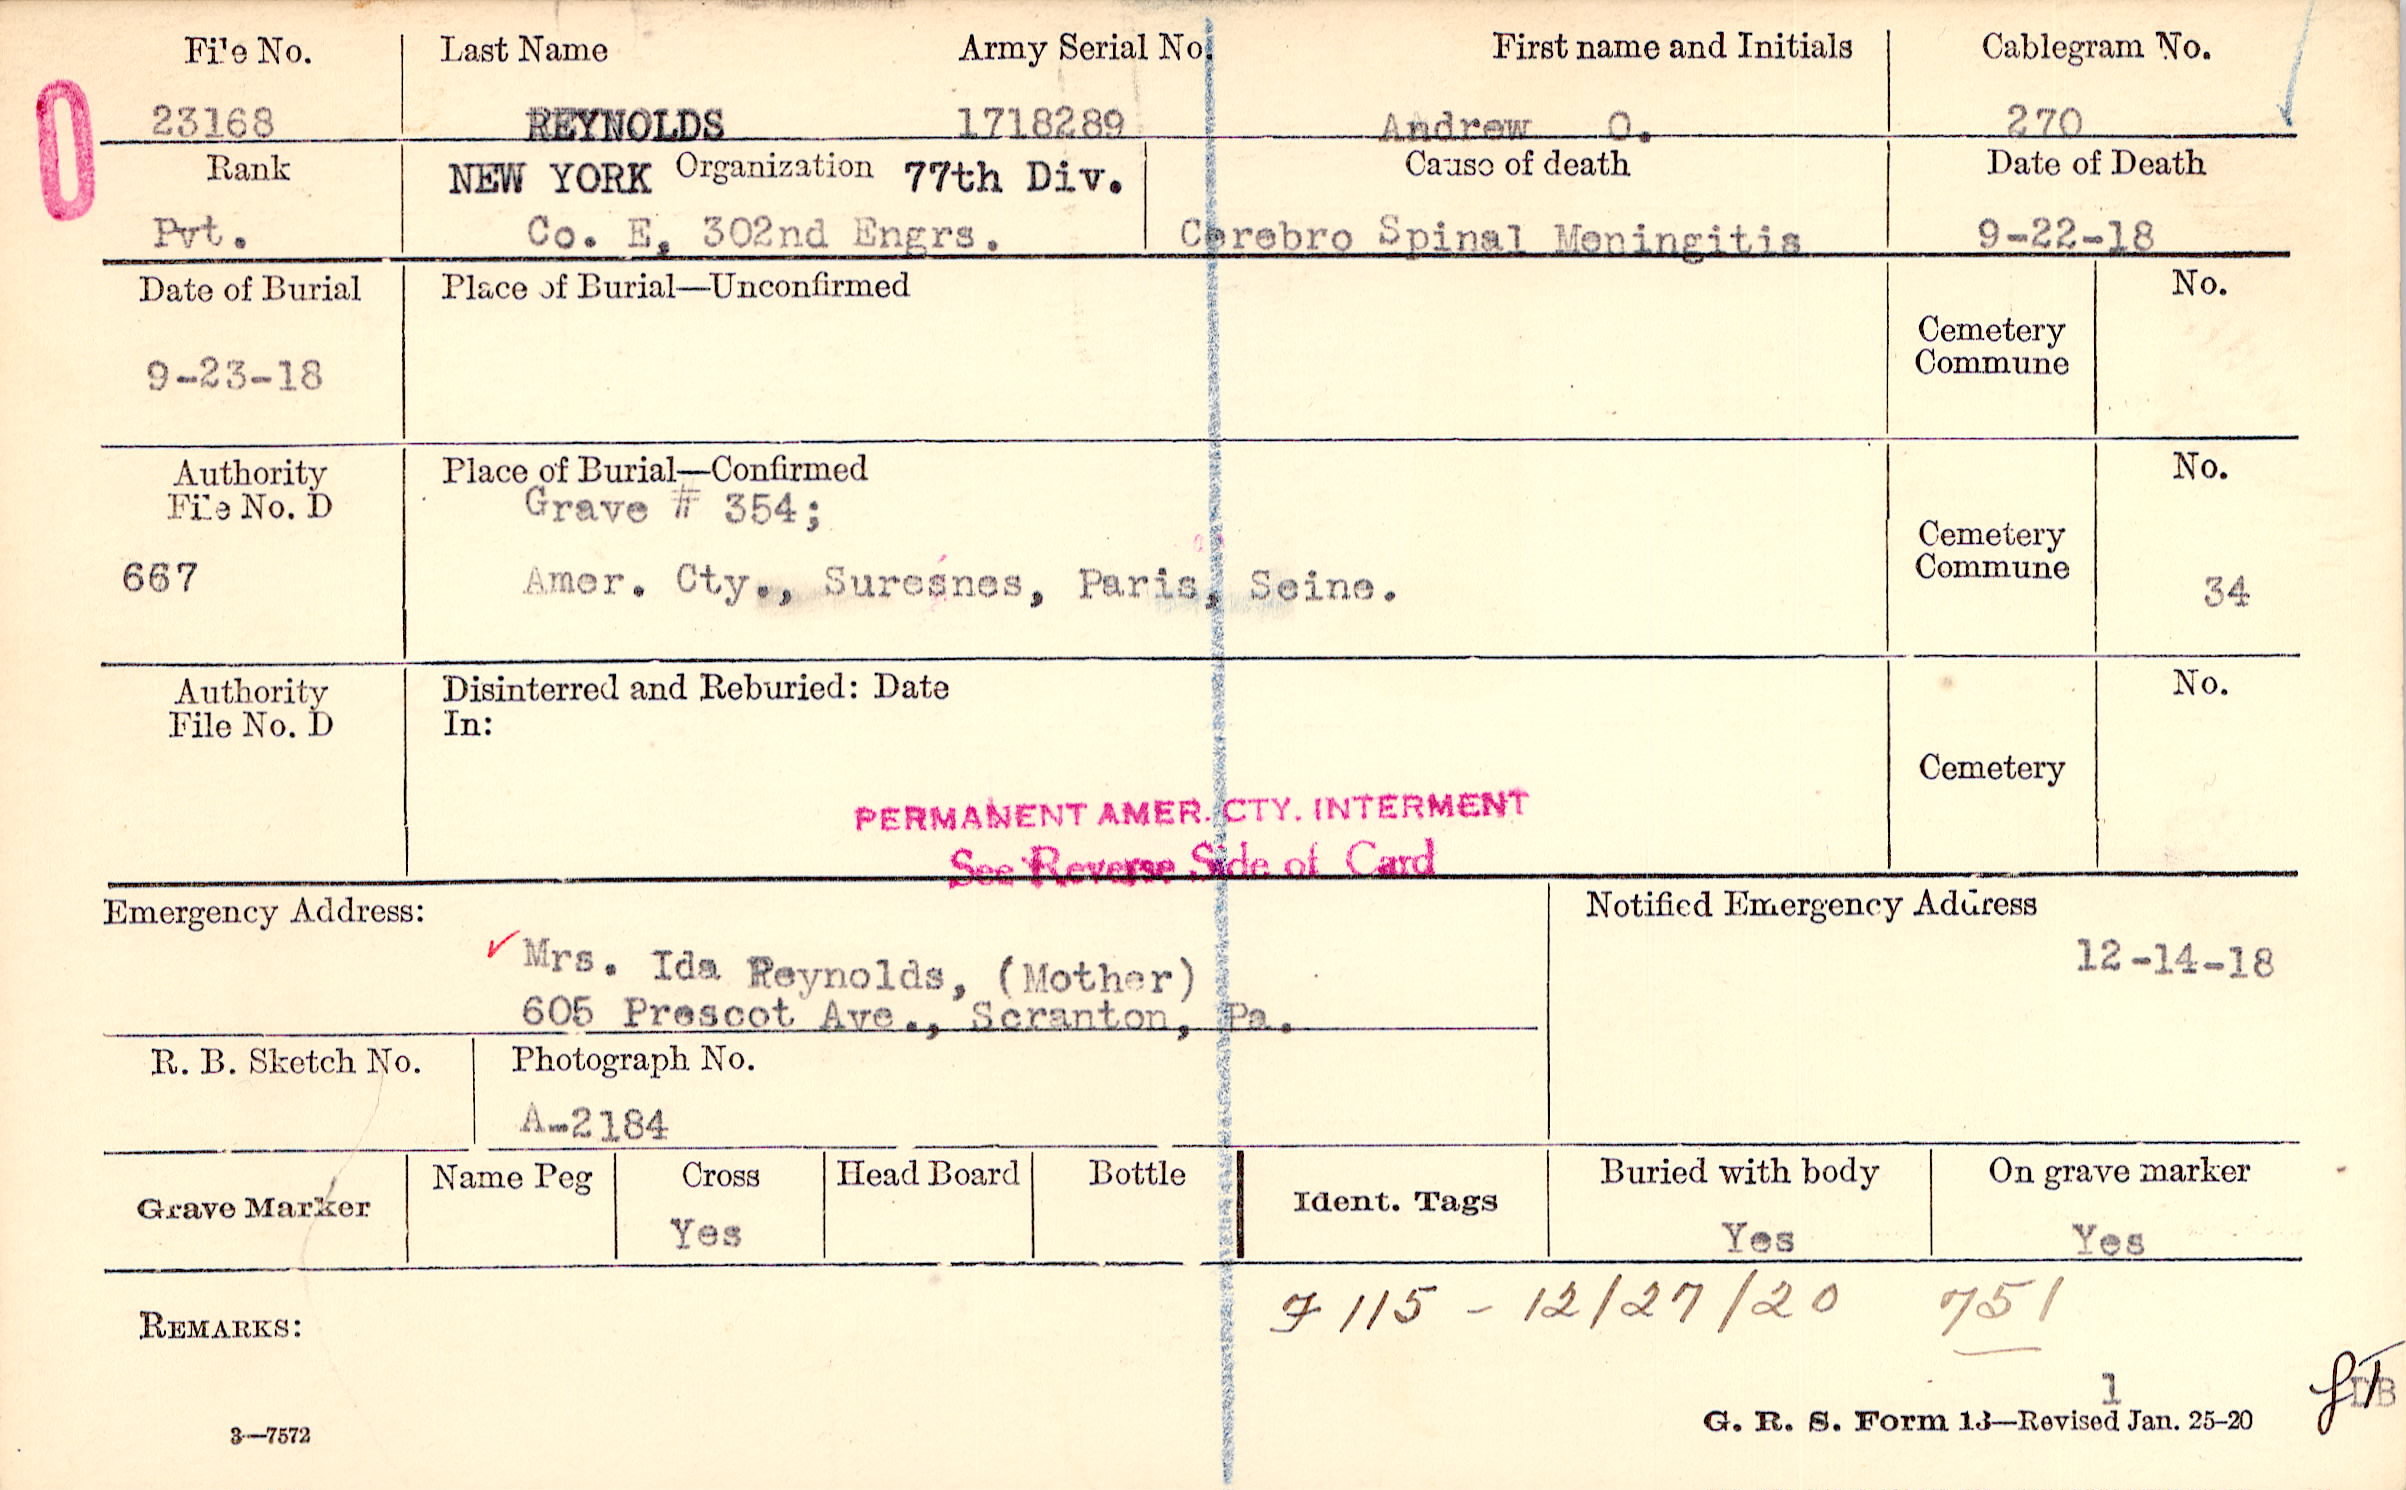 File No. Last Name Army Serial No. First name and Initials Cablegram No.
23168 REYNOLDS 1718289 Andrew O. 270
Rank NEW YORK Organization 77th Div. Cause of death Date of Death
Pvt. Co. E, 302nd Engrs. Cerebro Spinal Meningitis 9-22-18
Date of Burial Place of Burial—Unconfirmed No.
Cemetery
Commune
9-23-18
Authority Place of Burial—Confirmed No.
File No. D Grave # 354;
Cemetery
Commune
667 Amer. Cty., Suresnes, Paris, Seine. 34
Authority Disinterred and Reburied: Date No.
File No. D In:
Cemetery
PERMANENT AMER. CTY. INTERMENT
See Reverse Side of Card
Emergency Address: Notified Emergency Address
Mrs. Ida Reynolds, (Mother) 12-14-18
605 Prescot Ave., Scranton, Pa.
R. B. Sketch No. Photograph No.
A-2184
Grave Marker Name Peg Cross Head Board Bottle Ident. Tags Buried with body On grave marker
Yes Yes Yes
7115 - 12/27/20 751
REMARKS:
1
3—7572 G. R. S. Form 13—Revised Jan. 25-20